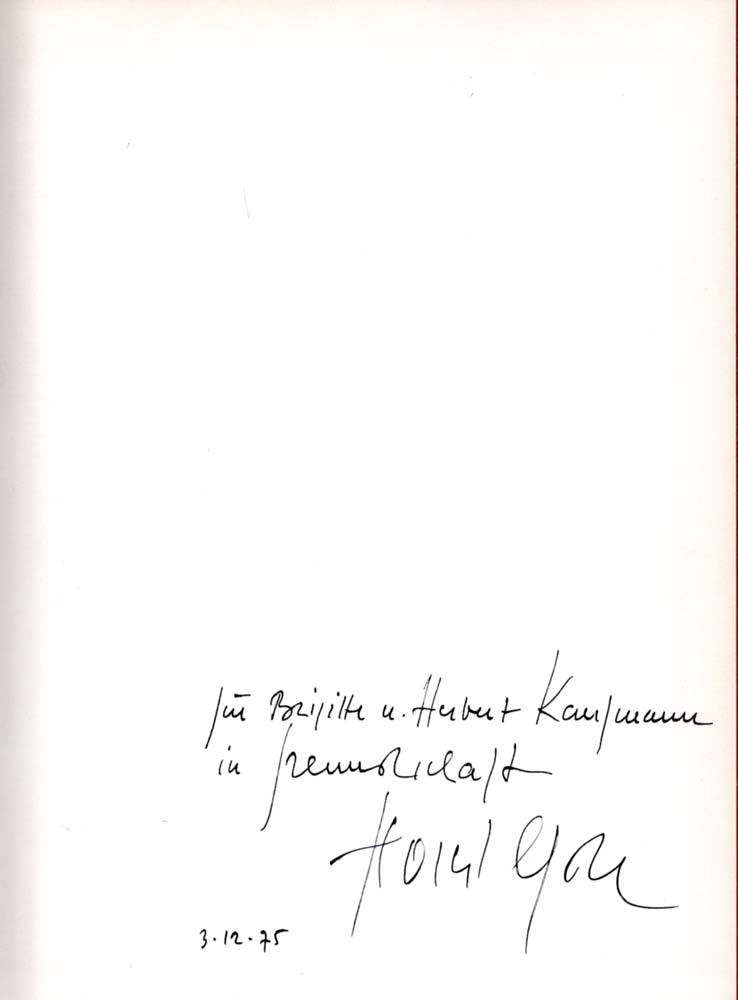 für Brigitte u. Herbert Kaufmann
in Freundschaft
Horst
3.12.75